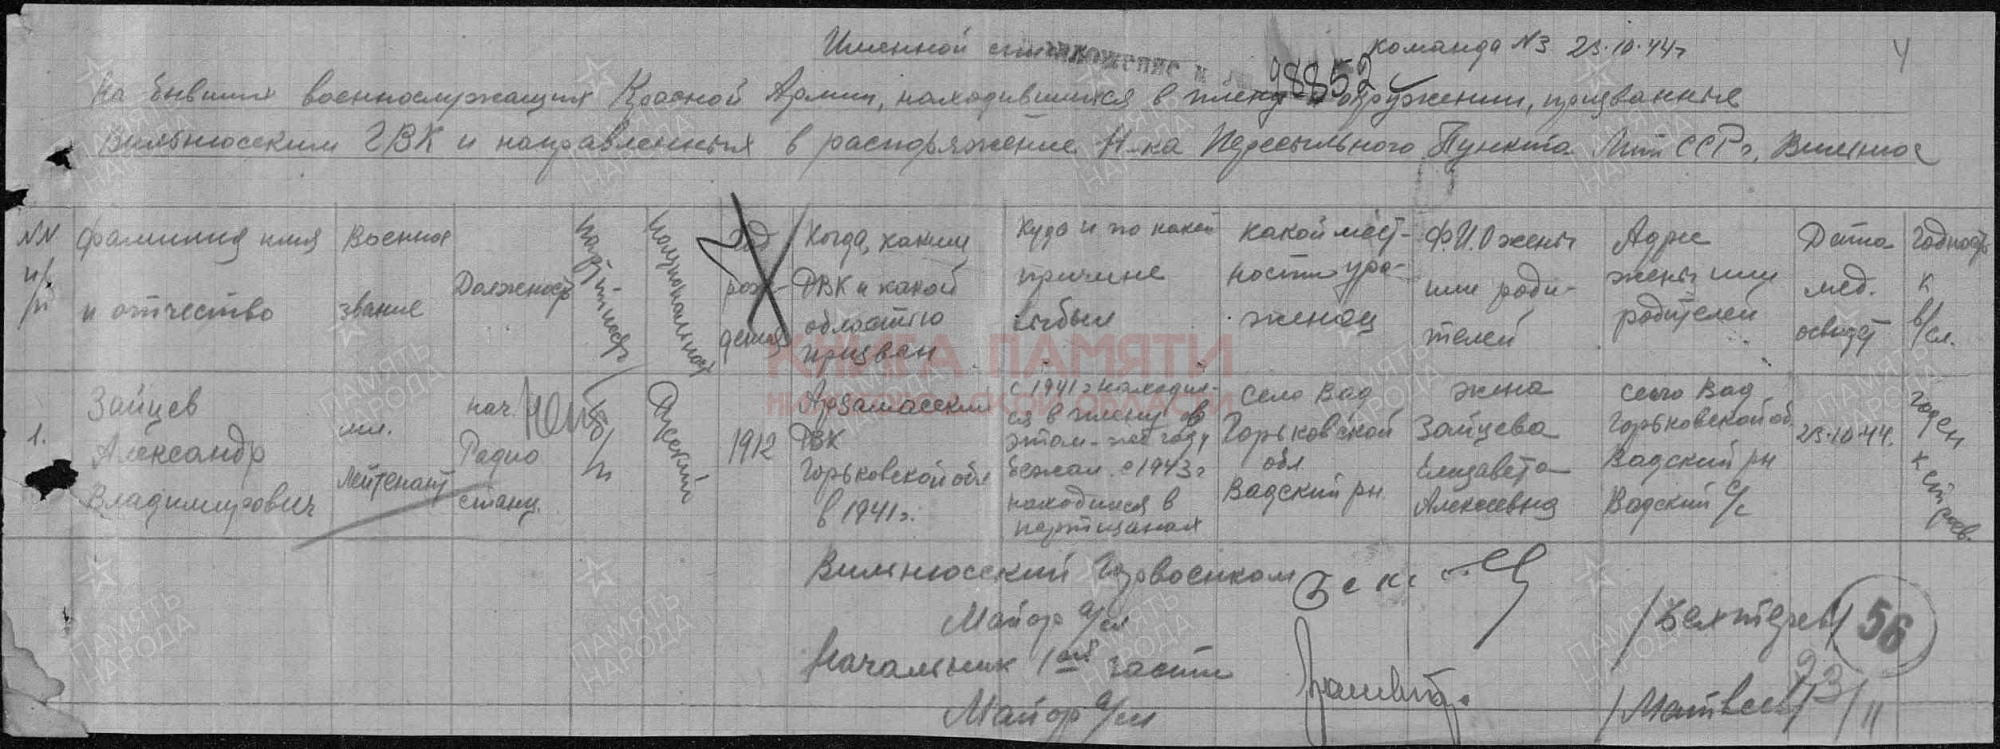 Именной список команда N3 23.10.44г
4
98852
На бывших военнослужащих Красной Армии, находившихся в плену и окружении, призванные
Вильнюсским ГВК и направленных в распоряжение Н-ка Пересыльного Пункта Лит ССР г. Вильнюс
NN п/п
фамилия имя и отчество
Военное звание
Должность
партийность
национальность
год рождения
Когда, каким РВК и какой областью призван
Куда и по какой причине выбыл
какой местности уроженец
Ф.И.О жены или родителей
Адрес жены или родителей
Дата мед. освидет
Годность к в/сл.
1.
Зайцев Александр Владимирович
мл. Лейтенант
нач. Радио станц.
б/п
Русский
1912
Арзамасским РВК Горьковской обл в 1941г.
с 1941г находился в плену в этом-же году бежал. с 1943г находился в партизанах
село Вад Горьковской обл. Вадский рн.
жена Зайцева Елизавета Алексеевна
село Вад Горьковской об. Вадский рн Вадский с/с
23.10.44.
годен к строев.
Вильнюсский Горвоенком
Майор а/сл
/Бехтерев/
56
Начальник 1ой части
Майор а/сл
/Матвеев/
23/11
КНИГА ПАМЯТИ
НИЖЕГОРОДСКОЙ ОБЛАСТИ
ПАМЯТЬ НАРОДА